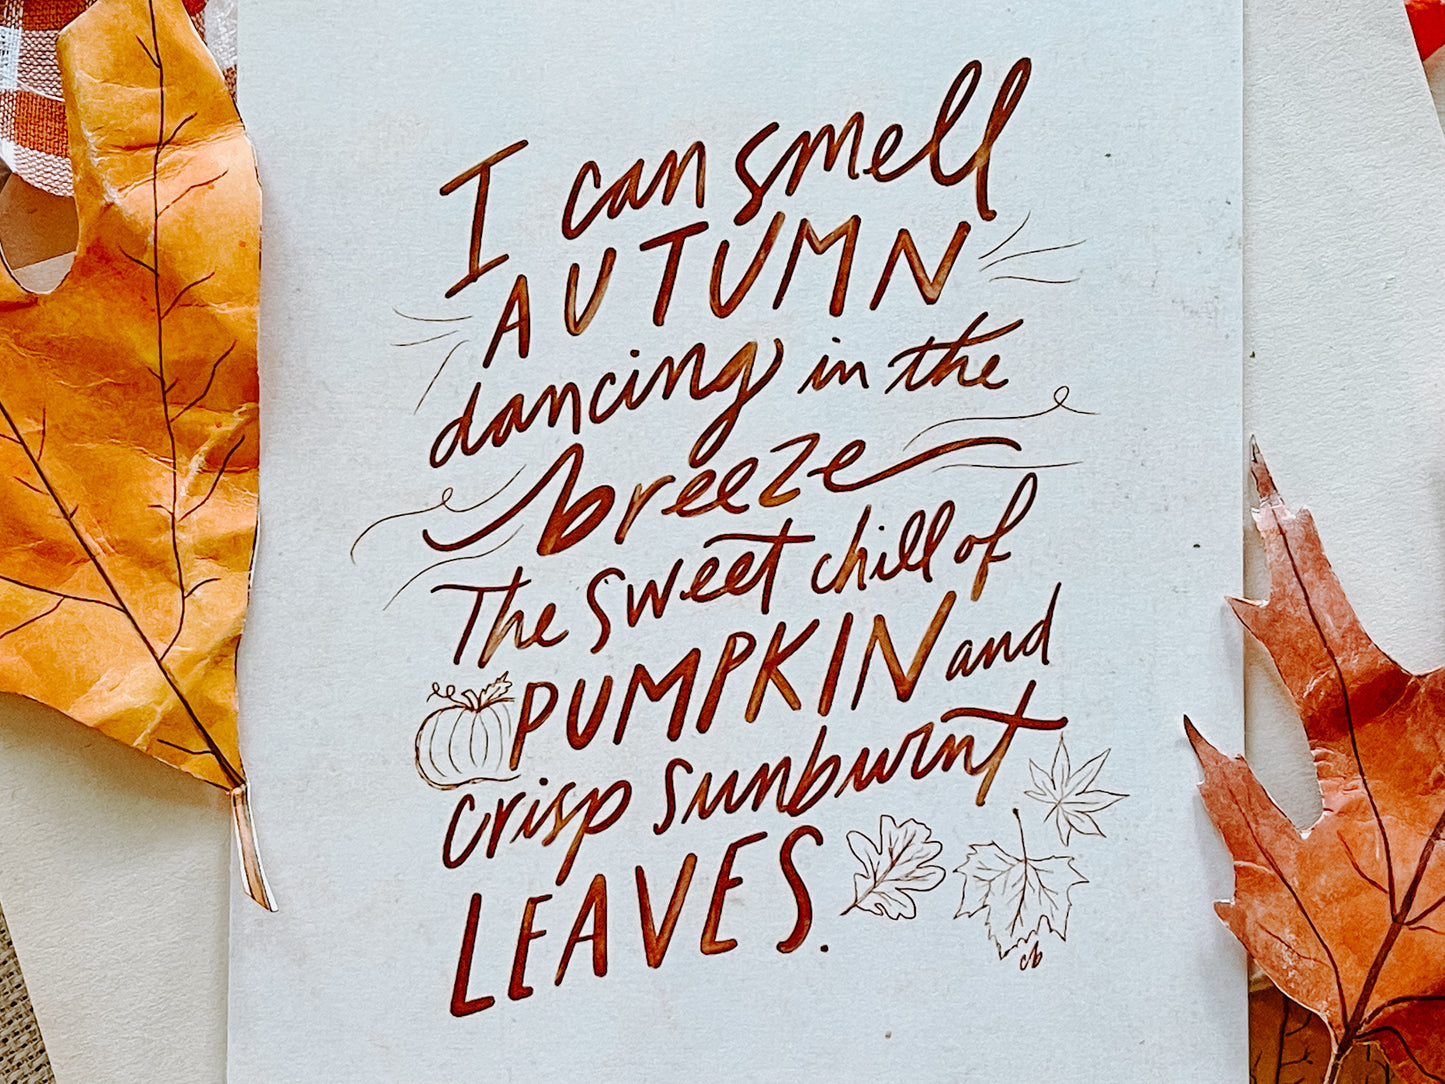 I can smell
AUTUMN
dancing in the
breeze
The sweet chill of
PUMPKIN and
crisp sunburnt
LEAVES.
cb